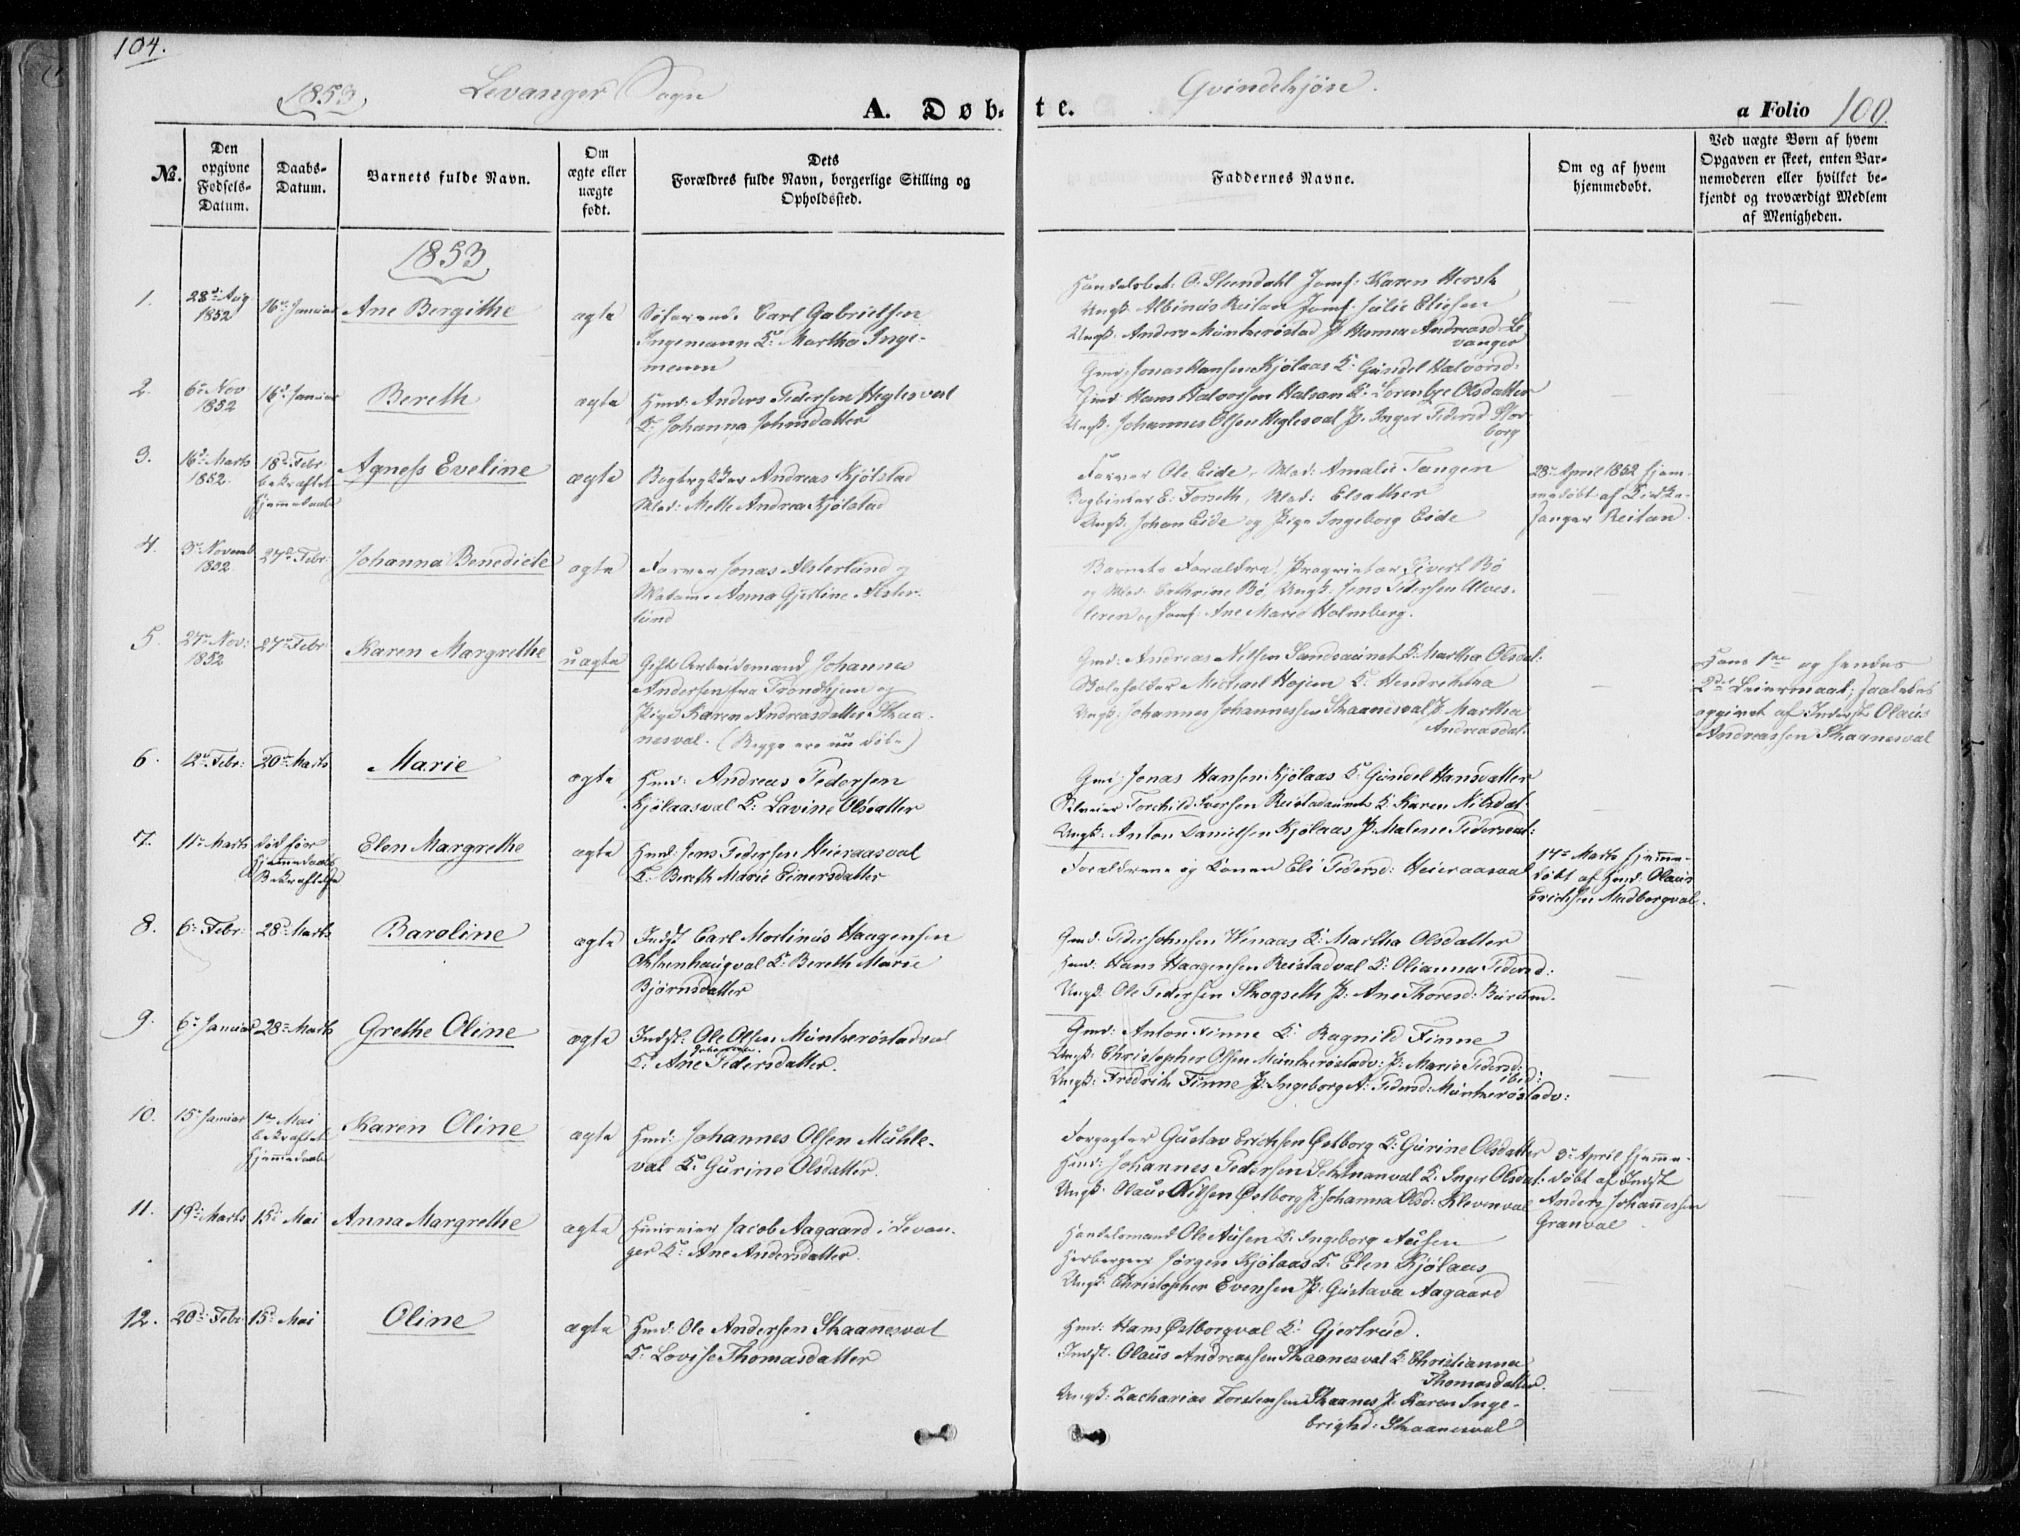 104.
1853 Levanger Sogn
Qvindekjøn.
A. Døb-te.
a Folio 100.
No.
Den opgivne Fødsels-Datum.
Daabs-Datum.
Barnets fulde Navn.
Om ægte eller uægte født.
Dets Forældres fulde Navn, borgerlige Stilling og Opholdssted.
Faddernes Navne.
Om og af hvem hjemmedøbt.
Ved uægte Børn af hvem Opgaven er skeet, enten Barnemoderen eller hvilket bekjendt og troværdigt Medlem af Menigheden.
1853
1. 28de Aug 1852 16de Januar Ane Bergithe ægte
Søfarende Carl Gabrielsen
Ingemann K: Martha Inge-
mann
Handelsbet: O. Steendahl Jomf: Karen Hersh
Ungk: Albinus Reitan Jomf: Julie Eliesen
Ungk: Anders Munkerøstad P. Hanna Andreasd: Le
vanger
2. 6te Nov 1852 16de Januar Bereth ægte
Hmd: Anders Pedersen Heglesval
K: Johanna Johnsdatter
Gmd: Jonas Hansen Kjølaas K: Gundel Halvorsd:
Hmd: Hans Halvorsen Halsan K: Lorentze Olsdatter
Ungk: Johannes Olsen Heglesval P. Inger Pedersd:
borg
3. 16de Marts 1852 18de Febr: bekræftet Hjemmedaab Agness Eveline ægte
Bogtrykker Andreas Kjølstad
Mad: Mette Andrea Kjølstad
Farver Ole Eide, Mad: Amalie Tangen
Bogbinder E: Forseth, Mad: Elsather
Ungk: Johan Eide og Pige Ingeborg Eide
28de April 1852 hjem-
medøbt af Kirke-
sanger Reitan.
4. 3de Novemb 1852 27de Febr: Johanna Benedicte ægte
Farver Jonas Alsterlund og
Madame Anna Gjertine Alster-
lund
Barnets Forældre, Proprietær Sivert Bö
og Mad: Cathrine Bö, Ungk: Jens Pedersen Alves-
leren og Jomf: Ane Marie Holmberg.
5. 27de Nov: 1852 27de Febr: Karen Margrethe uægte
Gift Arbeidsmand Johannes
Andersen fra Trondhjem og
Pige Karen Andreasdatter Skaa-
nesval. (Begge ere nu døde)
Gmd: Andreas Nilsen Sandsaunet K: Martha Olsdat:
Michael Hojem K: Hendrikka
Ungk: Johannes Johannessen Skaanesval P. Martha
Andreasdat:
Hans 1ste og hendes
2det Leiermaal; saaledes
opgivet af Inderst Olaus
Andreassen Skaanesval
6. 12te Febr: 20de Marts Marie ægte
Hmd: Andreas Pedersen
Kjølaasval K: Lavine Olsdatter
Gmd: Jonas Hansen Kjølaas K: Gundel Hansdatter
Selveier Torchild Iversen Reistadaunet K: Karen Nilsdat:
Ungk: Anton Danielsen Kjølaas P. Malene Pedersdat:
7. 11te Marts død før Hjemmedaabs Bekræftelse Elen Margrethe ægte
Hmd: Jens Pedersen Heieraasval
K: Bereth Marie Einersdatter
Forældrene og Konen Eli Pedersd: Heieraasval
17de Marts hjemme-
døbt af Hmd: Olaus
Erichsen Mudborgval.
8. 6te Febr: 28de Marts Baroline ægte
Indst: Carl Mortinus Haagensen
K: Bereth Marie
Bjørnsdatter
Gmd: Peder Johnsen Winaas K: Martha Olsdatter
Hmd: Hans Haagensen Reistadval K: Olianna Pedersd:
Ungk: Ole Pedersen Skogseth P. Ane Thoresd: Burdun.
9. 6te Januar 28de Marts Grethe Oline ægte
Indst: Ole Olsen Munkerøstadval
K: Ane Pedersdatter.
Gmd: Anton Finne K: Ragnild Finne
Ungk: Christopher Olsen Munkerøstadv: P: Marie Pedersd:
ibid:
Ungk: Fredrik Finne P. Ingeborg A: Pedersd: Munkerøstadv:
10. 15de Januar 1ste Mai bekræftet Hjemmedaab Karen Oline ægte
Hmd: Johannes Olsen Muhle-
val K: Gurine Olsdatter.
Forpagter Gustav Erichsen Østborg K: Gurine Olsdatter
Hmd: Johannes Pedersen K. Inger Olsdat:
Ungk: Olaus Nilsen Østborg P. Johanna Olsd: Klevenval
3de April hjemme-
døbt af Indst
Anders Johannessen
Granval
11. 19de Marts 15de Mai Anna Margrethe ægte
Huuseier Jacob Aagaard i Levan-
ger K: Ane Andersdatter.
Handelsmand Ole Ausen K: Ingeborg Ausen
Herbergeer Jørgen Kjølaas K: Elen Kjølaas
Ungk: Christopher Evensen P: Gustava Aagaard
12. 20de Febr 15de Mai Oline ægte
Hmd: Ole Andersen Skaanesval
K: Lovise Thomasdatter
Hmd: Hans Østborgval K: Gjertrud.
Indst: Olaus Andreassen Skaanesval K: Christianna
Thomasdatter.
Ungk: Zacharias Torstensen Skaanes P. Karen Inge-
brigtsd: Skaanesval